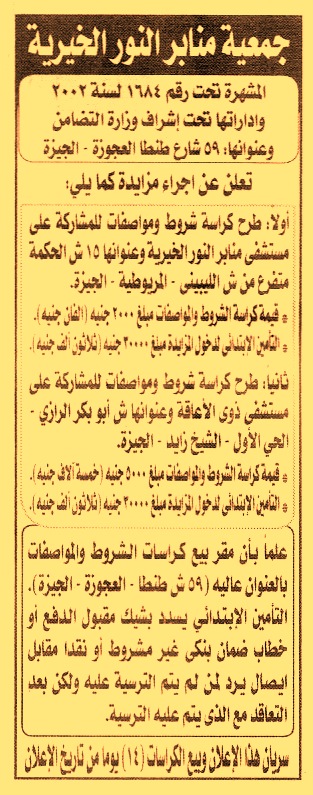 جمعية منابر النور الخيرية
المشهرة تحت رقم ١٦٨٤ لسنة ٢٠٠٢
واداراتها تحت إشراف وزارة التضامن
وعنوانها: ٥٩ شارع طنطا العجوزة - الجيزة
تعلن عن اجراء مزايدة كما يلي:
أولاً: طرح كراسة شروط ومواصفات للمشاركة على
مستشفى منابر النور الخيرية وعنوانها ١٥ ش الحكمة
متفرع من ش الليبينى - المريوطية - الجيزة.
* قيمة كراسة الشروط والمواصفات مبلغ ٢٠٠٠ جنيه (الفان جنيه).
* التأمين الإبتدائى لدخول المزايدة مبلغ ٣٠٠٠٠ جنيه (ثلاثون ألف جنيه).
ثانياً: طرح كراسة شروط ومواصفات للمشاركة على
مستشفى ذوى الأعاقة وعنوانها ش أبو بكر الرازي -
الحي الأول - الشيخ زايد - الجيزة.
* قيمة كراسة الشروط والمواصفات مبلغ ٥٠٠٠ جنيه (خمسة آلاف جنيه).
* التأمين الإبتدائى لدخول المزايدة مبلغ ٣٠٠٠٠ جنيه (ثلاثون ألف جنيه).
علماً بأن مقر بيع كراسات الشروط والمواصفات
بالعنوان عاليه (٥٩ ش طنطا - العجوزة - الجيزة).
التأمين الإبتدائي يسدد بشيك مقبول الدفع أو
خطاب ضمان بنكى غير مشروط أو نقدا مقابل
ايصال يرد لمن لم يتم الترسية عليه ولكن بعد
التعاقد مع الذى يتم عليه الترسية.
سريان هذا الإعلان وبيع الكراسات (١٤) يوما من تاريخ الإعلان